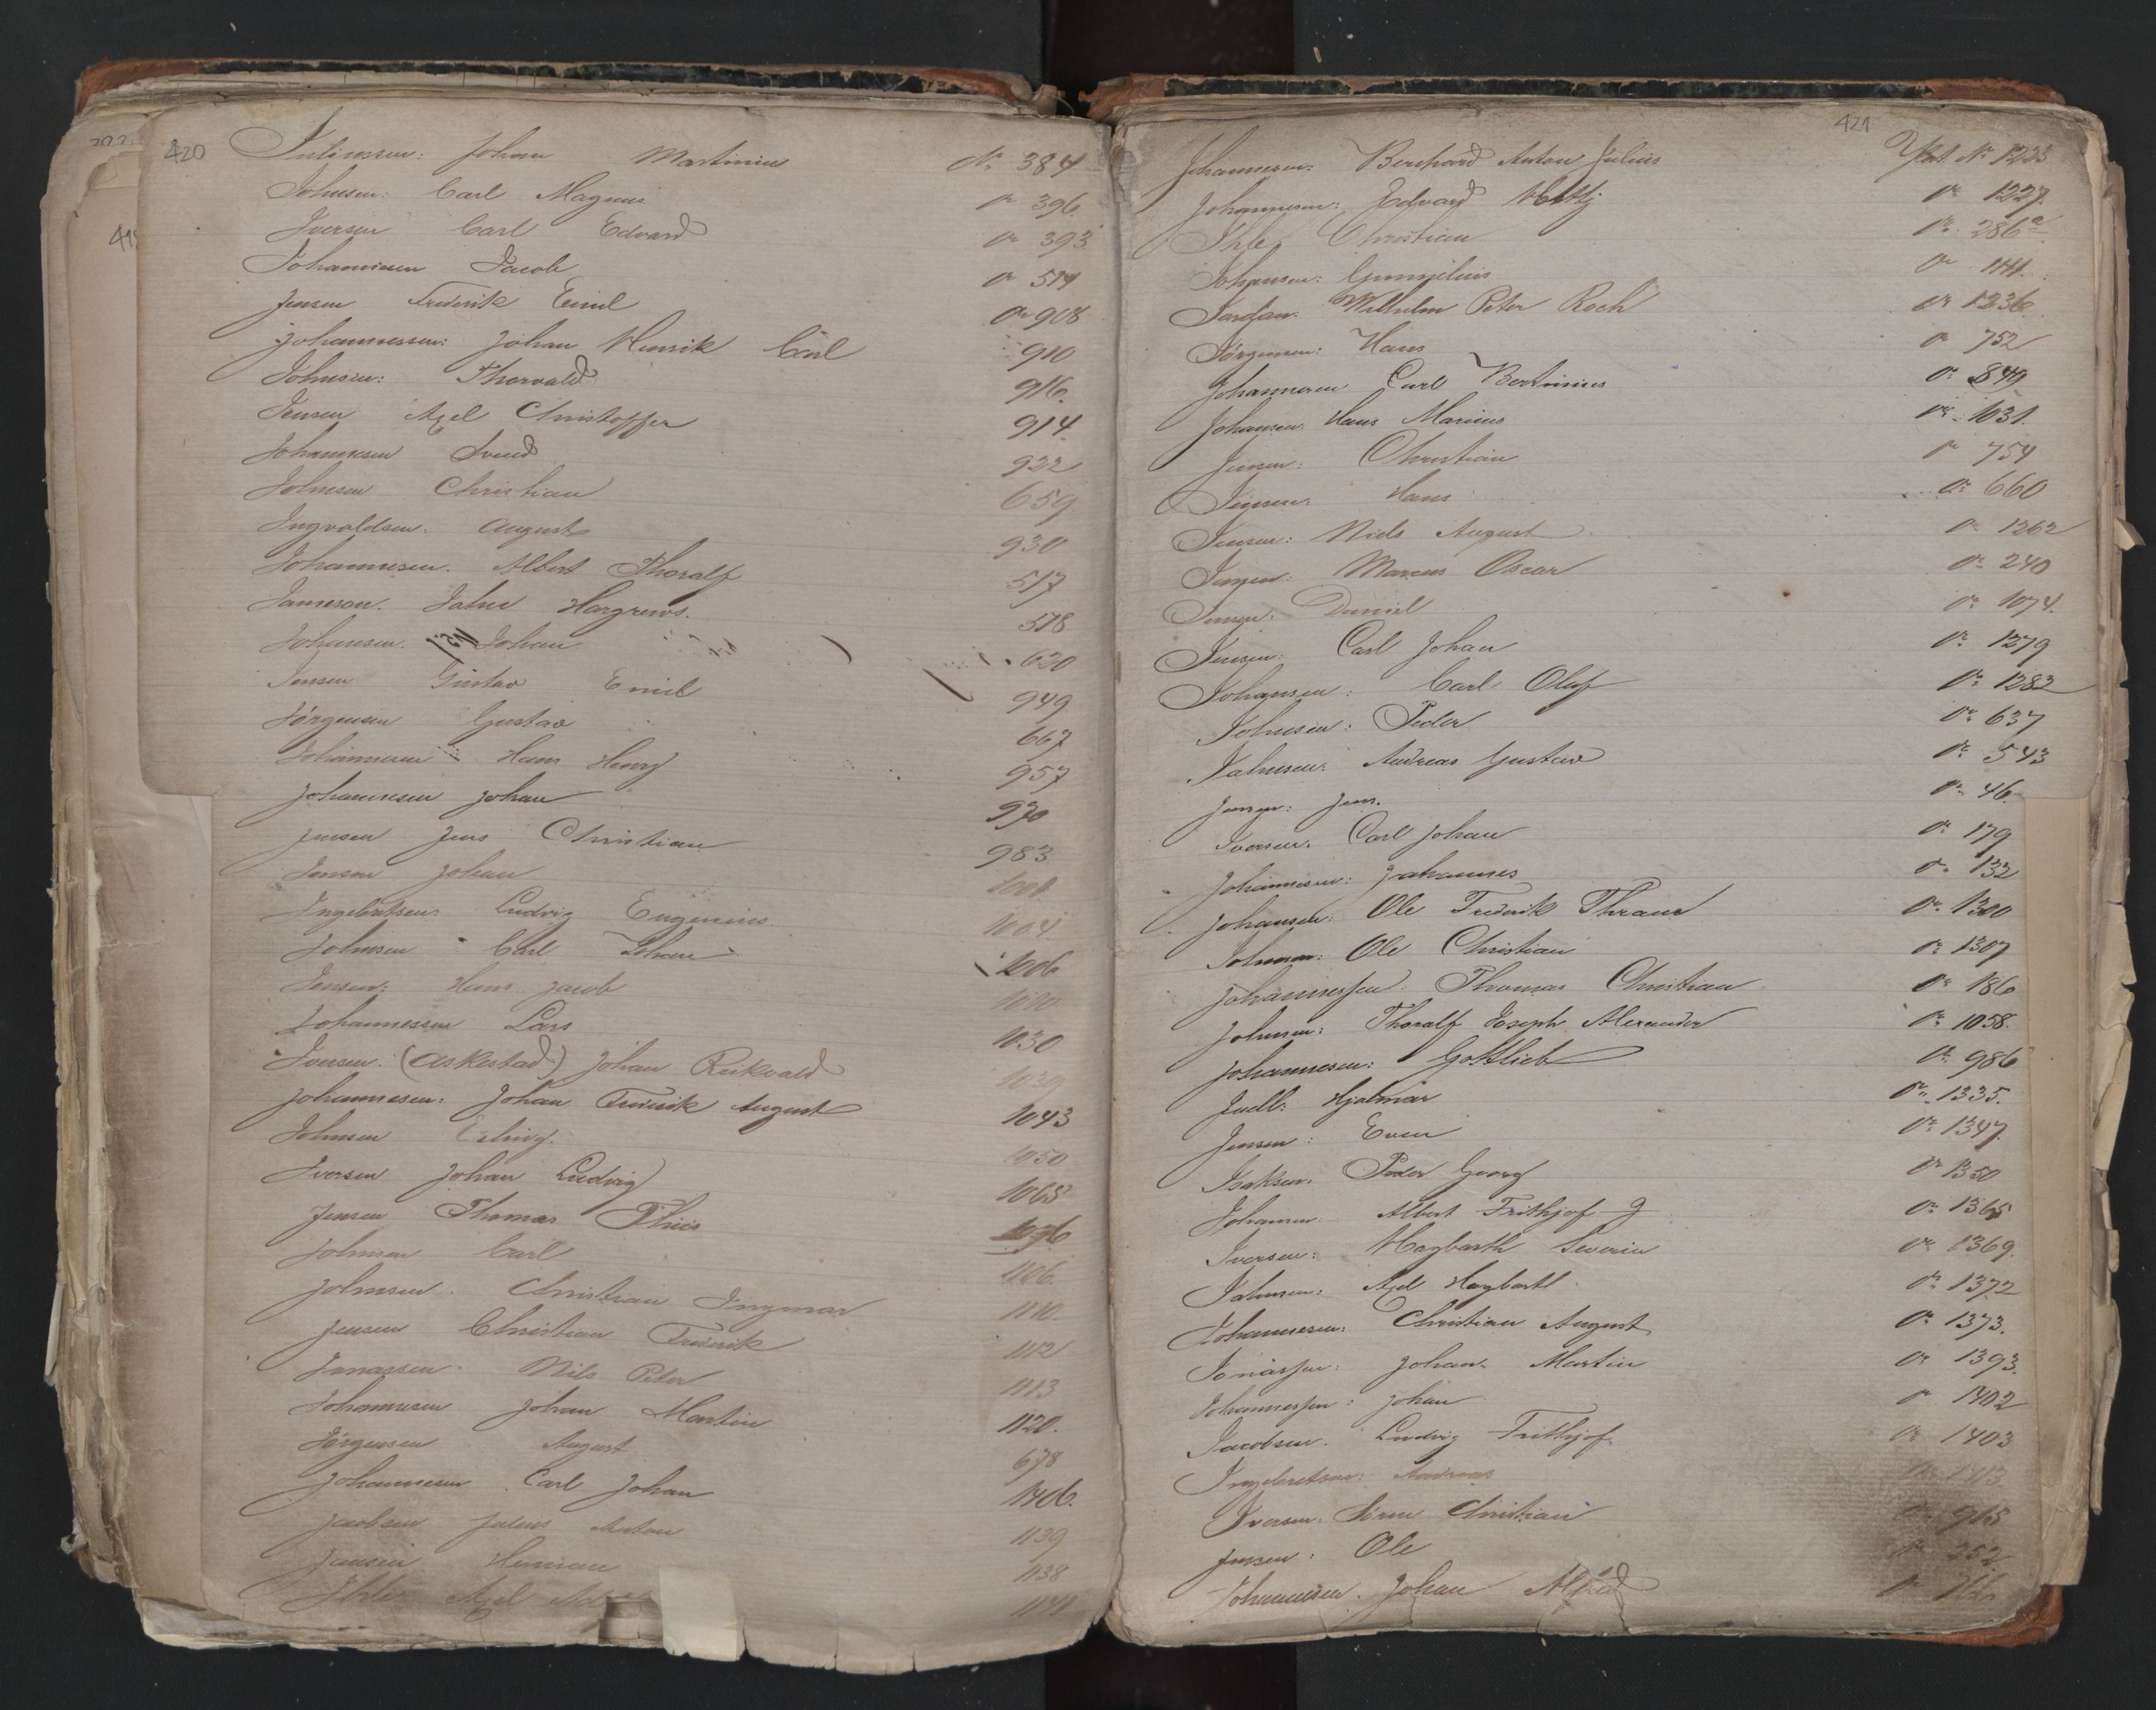 420
Juliussen: Johan Martinius No 384
Johnsen: Carl Magnus " 396.
Iversen Carl Edvard " 393
Johannesen Jacob " 514
Jensen Frederik Emil " 908
Johannessen: Johan Henrik Carl 910
Johnsen: Thorvald 916.
Jensen Axel Christoffer 914.
Johannesen Svend 922
Johnsen Christian 659
Ingvaldsen. August 930
Johannesen. Albert Thoralf 517
Jameson. John Hargrews. 518
Johansen. Johan 620
Jensen Gustav Emil 949
Jörgensen Gustav 667
Johannesen Hans Henry 957
Johannesen Johan 970
Jensen Jens Christian 983
Jensen Johan
Ingebretsen: Ludvig Eugenius 1004
Johnsen Carl Johan 1006
Jensen: Hans Jacob 1010
Johannessen Lars 1030
Iversen. (Askestad) Johan Reikvald 1039
Johannesen: Johan Frederik August 1043
Johnsen 1050
Iversen Johan Ludvig 1068
Jensen Thomas Thies 1096
Johnsen Carl 1106.
Johnsen. Christian Ingmar 1110.
Jensen Christian Frederik 1112
Jonassen. Nils Peter 1113
Johannesen Johan Martin 1120.
Jörgensen August 678
Johannesen Carl Johan 1406.
Jacobsen Julius Anton 1139
Jansen Herman 1138
Ihle Axel 1141
421
Johannesen. Bernhard Anton Julius No 1223
Johannesen: Edvard " 1227.
Ihle, Christian " 286a
Johansen: Gunnelius " 1141.
Jordan. Wilhelm Peter Roch " 1236.
Jörgensen: Hans " 752
Johannesen Carl Bertinius " 849
Johansen. Hans Marius " 1031.
Jensen: Christian " 754
Jensen. Hans " 660
Jensen: Niels August " 1262
Jensen: Marcus Oscar " 240
Jensen. Daniel " 1074.
Jensen: Carl Johan " 1279
Johansen: Carl Oluf " 1282
Johnsen: Peder " 637
Johnsen: Andreas Gustav " 543
Jensen: Jens. " 46.
Iversen. Carl Johan " 179
Johannesen: Johannes " 132
Johansen: Ole Frederik Thrane " 1300
Johnsen: Ole Christian " 1307
Johannessen: Thomas Christian " 186
Johnsen: Thoralf Joseph Alexander " 1058.
Johannesen: Gottlieb " 986
Juell: Hjalmar " 1335.
Jensen: Even " 1347.
Isaksen. Peder Georg " 1350
Johansen Albert Frithjof J " 1365
Iversen: Hagbarth Severin " 1369.
Johnsen: Axel Hagbarth " 1372
Johannesen: Christian August " 1373.
Jonassen: Johan Martin " 1393.
Johannessen: Johan " 1402
Jacobsen. Ludvig Frithjof " 1403
Ingebretsen: Andreas
Iversen. Sören Christian " 968
Jensen: Ole " 252
Johannesen. Johan Alfred